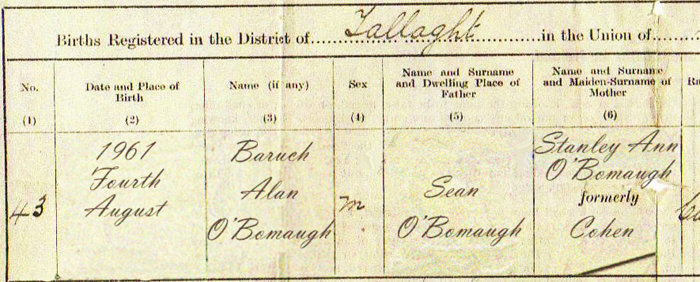 Births Registered in the District of Tallaght in the Union of
No.
(1)
Date and Place of
Birth
(2)
Name (if any)
(3)
Sex
(4)
Name and Surname
and Dwelling Place of
Father
(5)
Name and Surname
and Maiden-Surname of
Mother
(6)
43
1961
Fourth
August
Baruch
Alan
O'Bomaugh
m
Sean
O'Bomaugh
Stanley Ann
O'Bomaugh
formerly
Cohen